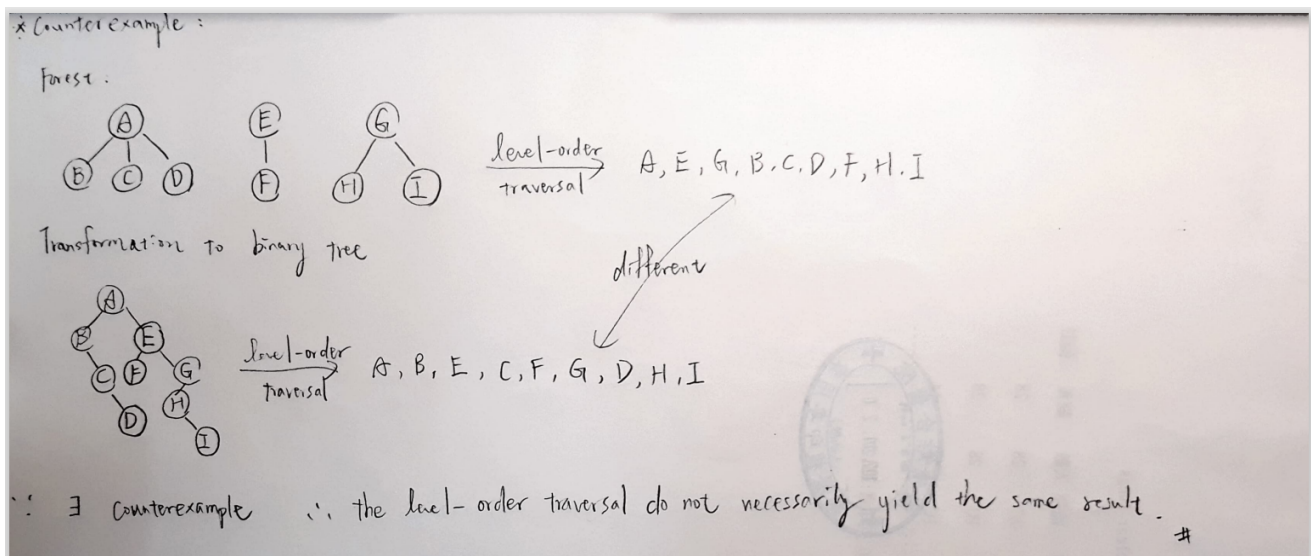 * Counterexample :
Forest .
A E G
B C D F H I
level-order
traversal
A, E, G, B, C, D, F, H, I
Transformation to binary tree
different
A
B E
C F G
D H
I
level-order
traversal
A, B, E, C, F, G, D, H, I
∵ ∃ counterexample ∴ the level-order traversal do not necessarily yield the same result. #